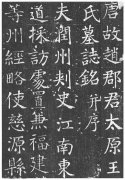 唐故趙郡君太原王
氏墓誌銘并序
夫潤州刺史江南東
道採訪處置兼福建
等州經略使慈源縣